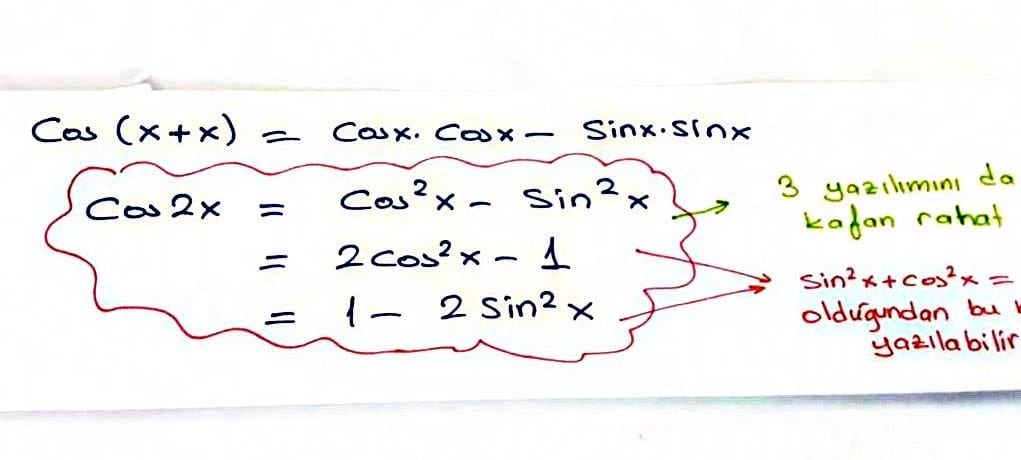 Cos (x+x) = Cosx. Cosx - Sinx.Sinx
Cos2x = Cos²x - Sin²x
= 2cos²x - 1
= 1 - 2 Sin²x
3 yazılımını da
kafan rahat
Sin²x+cos²x =
olduğundan bu
yazılabilir